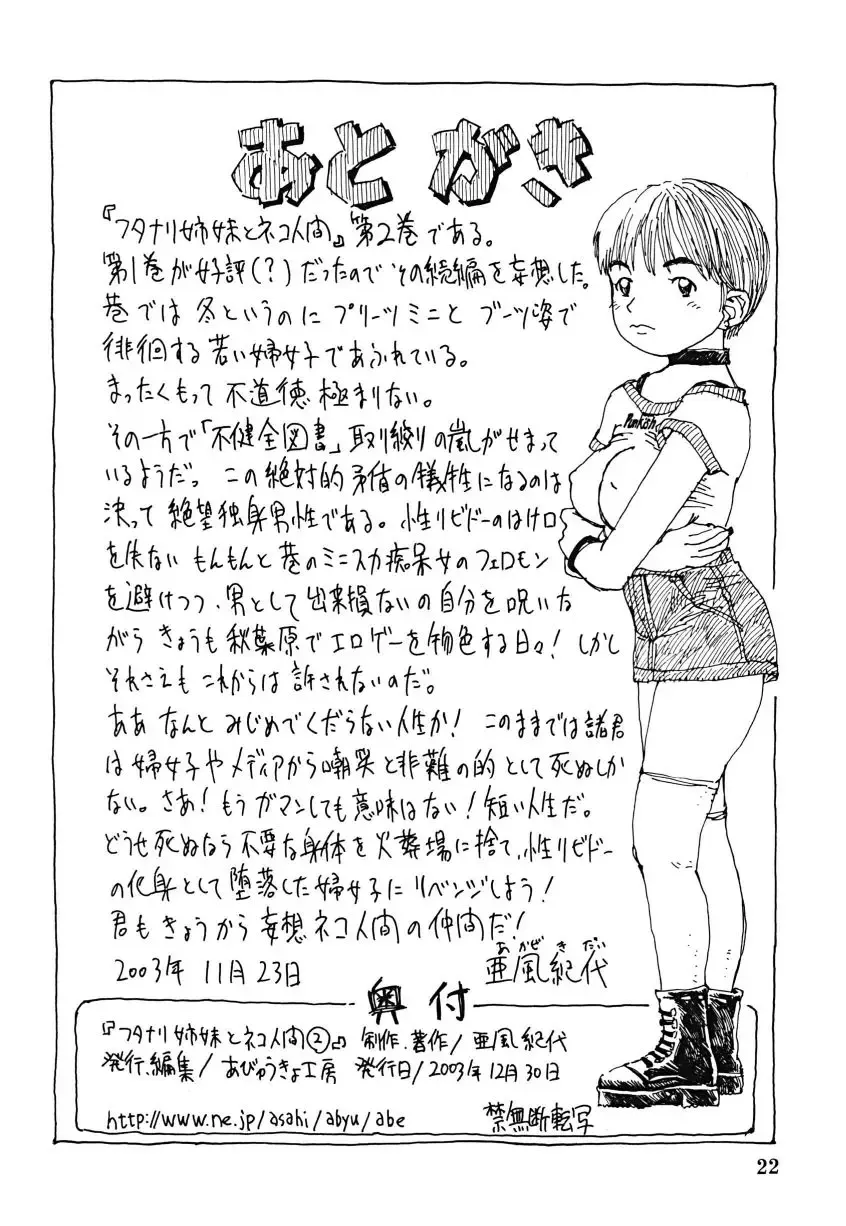 あとがき
『フタナリ姉妹とネコ人間』第2巻である。
第1巻が好評(?)だったのでその続編を妄想した。
巷では冬というのにプリーツミニとブーツ姿で
徘徊する若い婦女子であふれている。
まったくもって不道徳極まりない。
その一方で「不健全図書」取り締りの嵐がせまって
いるようだ。この絶対的矛盾の犠牲になるのは
決って絶望独身男性である。性リビドーのはけ口
を失ない もんもんと巷のミニスカ痴呆女のフェロモン
を避けつつ、男として出来損ないの自分を呪いな
がら きょうも秋葉原でエロゲーを物色する日々! しかし
それさえもこれからは許されないのだ。
ああ なんと みじめでくだらない人生か! このままでは諸君
は婦女子やメディアから嘲笑と非難の的として死ぬしか
ない。さあ! もうガマンしても意味はない! 短い人生だ。
どうせ死ぬなら不要な身体を火葬場に捨て、性リビドー
の化身として堕落した婦女子にリベンジしよう!
君もきょうから妄想ネコ人間の仲間だ!
2003年 11月23日
あかぜ きだい
亜風紀代
Punkish
奥付
『フタナリ姉妹とネコ人間②』 制作、著作/亜風紀代
発行、編集/あびゅうきょ工房 発行日/2003年12月30日
http://www.ne.jp/asahi/abyu/abe
禁無断転写
22